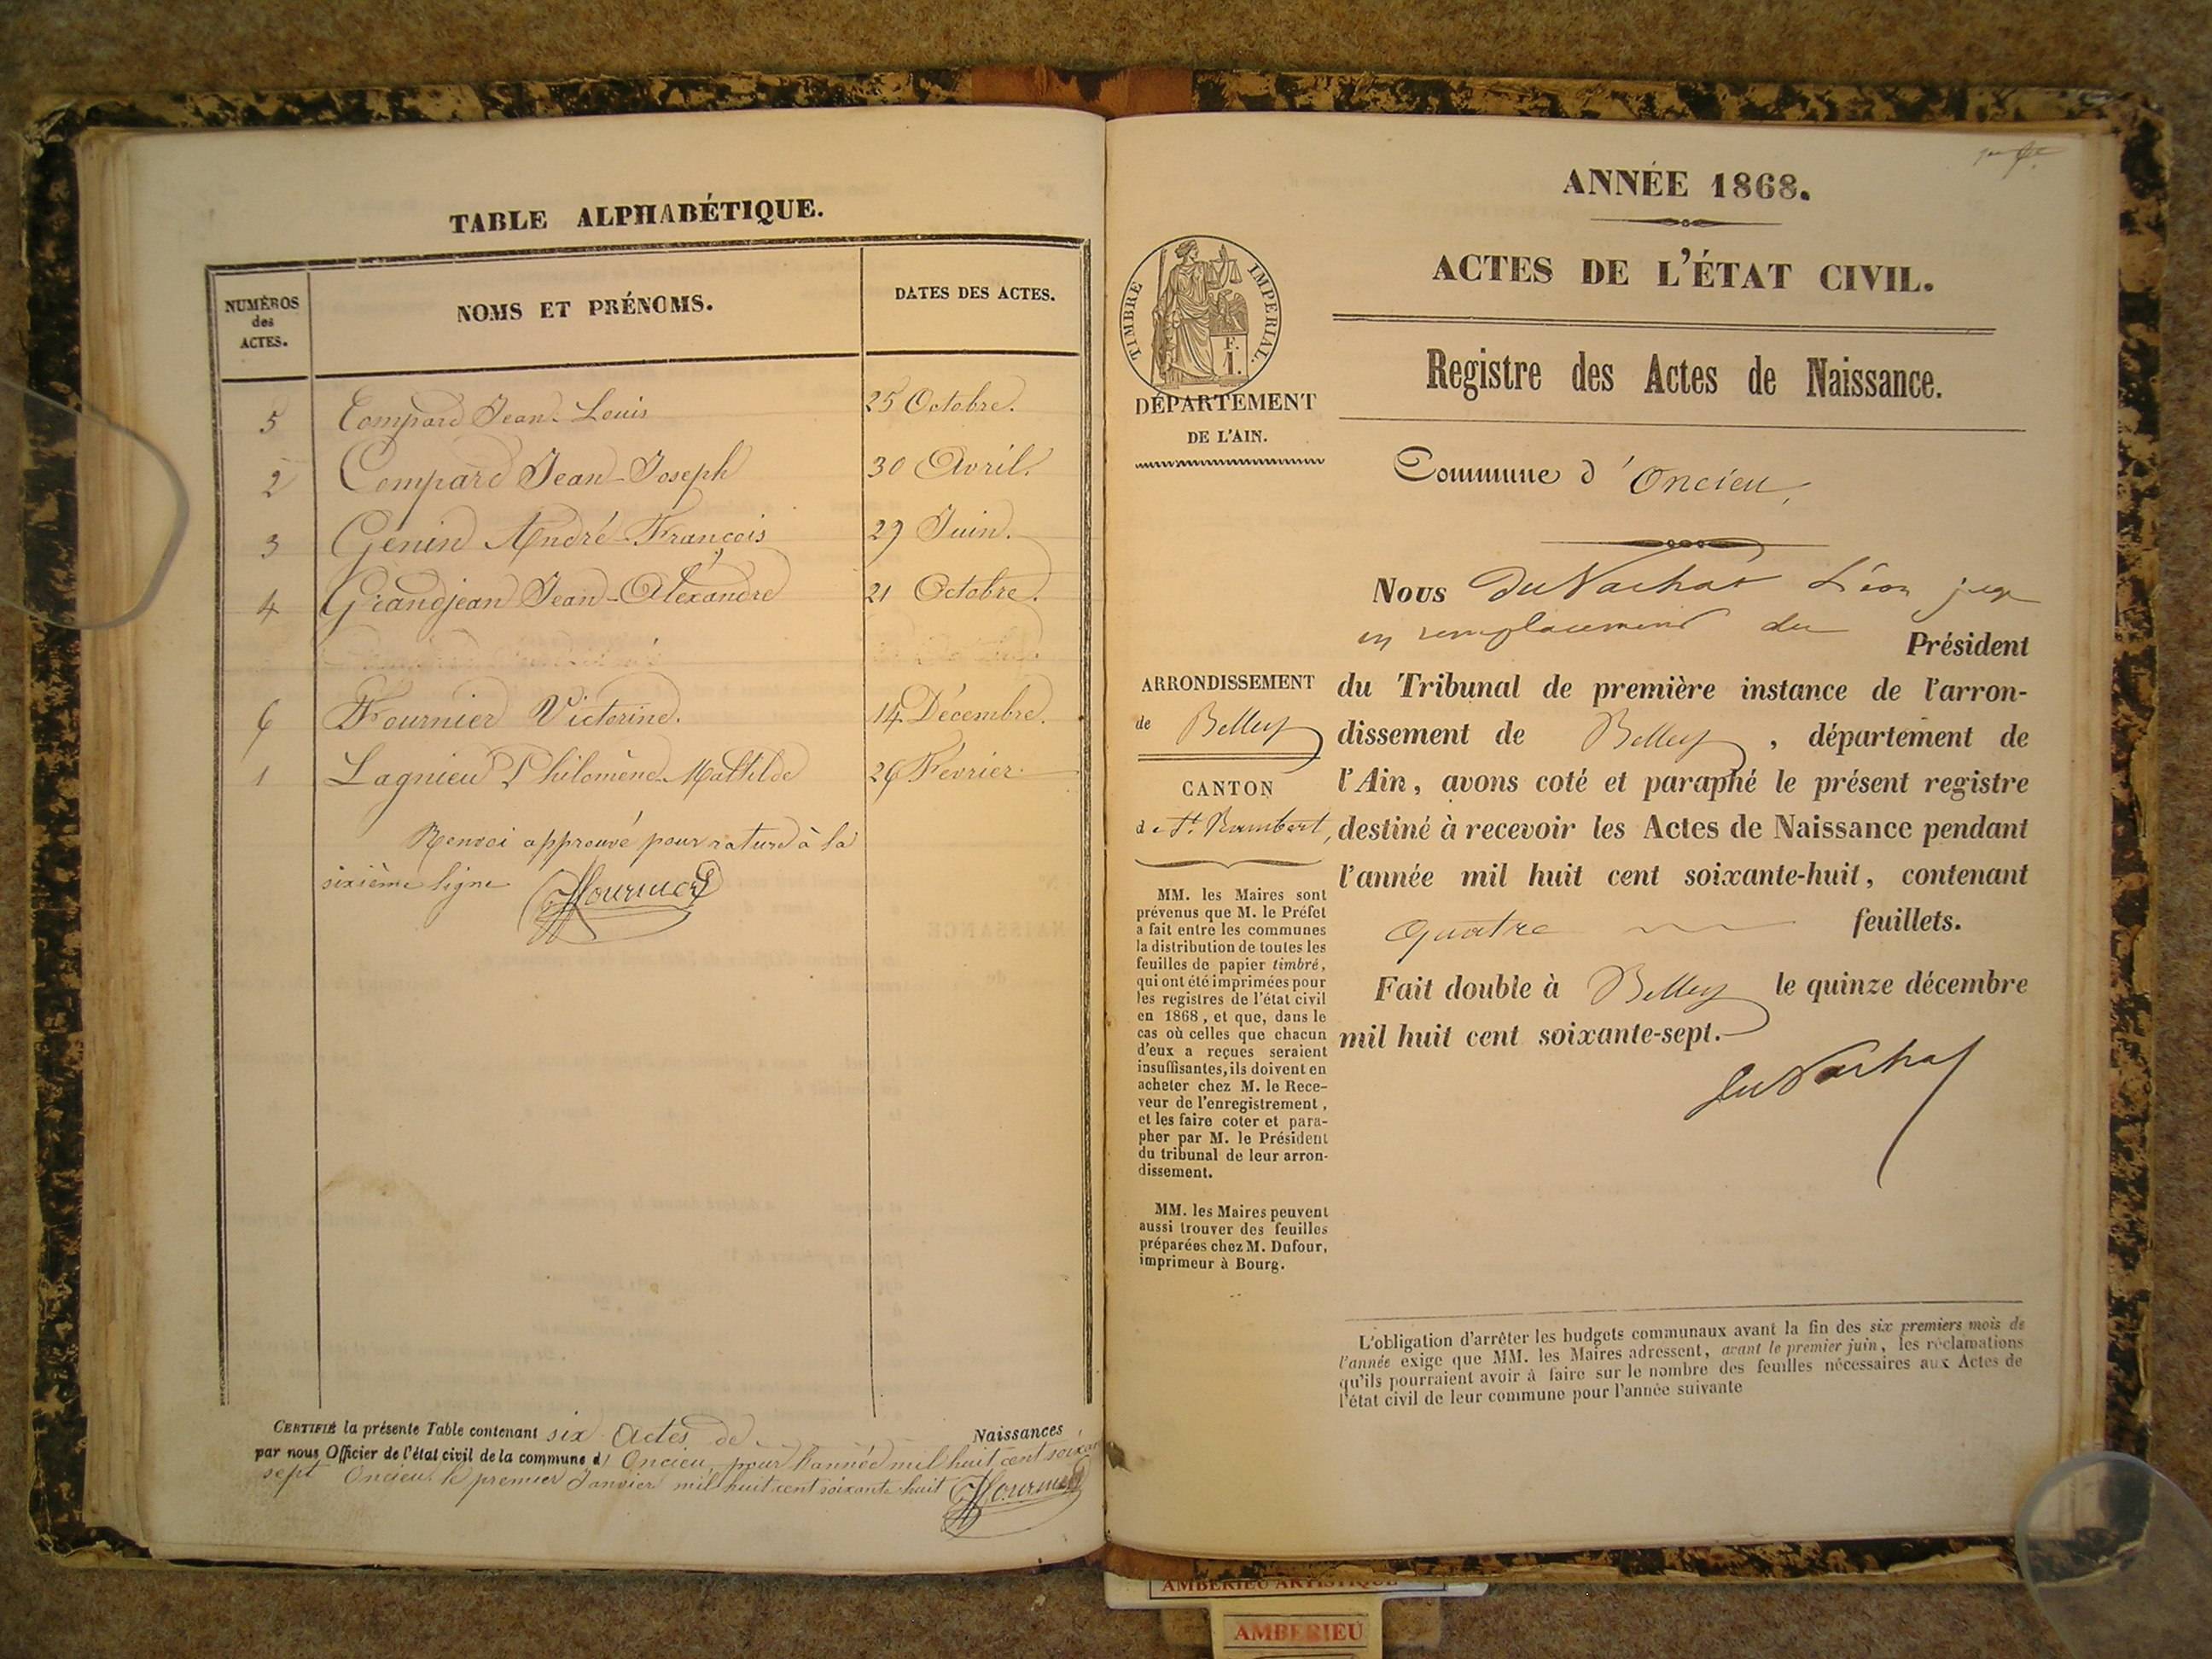 TABLE ALPHABÉTIQUE.
NUMÉROS
des
ACTES.
NOMS ET PRÉNOMS.
DATES DES ACTES.
5 Compard Jean-Louis 25 Octobre.
2 Compard Jean-Joseph 30 Avril.
3 Genin André-François 29 Juin.
4 Grandjean Jean-Alexandre 21 Octobre.
6 Fournier Victorine. 14 Décembre.
1 Lagnieu Philomène-Mathilde 26 Février.
Renvoi approuvé pour rature à la
sixième ligne
CERTIFIÉ la présente Table contenant six Actes de Naissances
par nous Officier de l'état civil de la commune d' Oncieu, pour l'année mil huit cent soixan
sept Oncieu le premier Janvier mil huit cent soixante huit
ANNÉE 1868.
ACTES DE L'ÉTAT CIVIL.
Registre des Actes de Naissance.
TIMBRE IMPÉRIAL.
F.
1.
DÉPARTEMENT
DE L'AIN.
Commune d'Oncieu,
Nous DuNachat Léon juge
en remplacement du
Président
du Tribunal de première instance de l'arron-
dissement de Belley, département de
l'Ain, avons coté et paraphé le présent registre
destiné à recevoir les Actes de Naissance pendant
l'année mil huit cent soixante-huit, contenant
quatre feuillets.
Fait double à Belley le quinze décembre
mil huit cent soixante-sept.
DuNachat
ARRONDISSEMENT
de Belley
CANTON
de St. Rambert,
MM. les Maires sont
prévenus que M. le Préfet
a fait entre les communes
la distribution de toutes les
feuilles de papier timbré,
qui ont été imprimées pour
les registres de l'état civil
en 1868, et que, dans le
cas où celles que chacun
d'eux a reçues seraient
insuffisantes, ils doivent en
acheter chez M. le Rece-
veur de l'enregistrement,
et les faire coter et para-
pher par M. le Président
du tribunal de leur arron-
dissement.
MM. les Maires peuvent
aussi trouver des feuilles
préparées chez M. Dufour,
imprimeur à Bourg.
L'obligation d'arrêter les budgets communaux avant la fin des six premiers mois de
l'année exige que MM. les Maires adressent, avant le premier juin, les réclamations
qu'ils pourraient avoir à faire sur le nombre des feuilles nécessaires aux Actes de
l'état civil de leur commune pour l'année suivante
AMBERIEU ARTISTIQUE
AMBERIEU